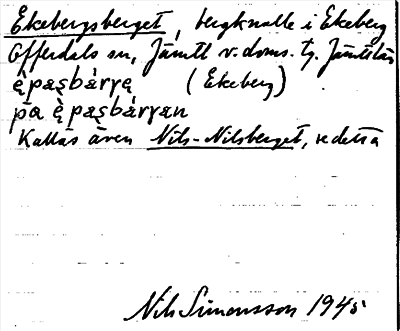 Ekebergsberget, bergknalle i Ekeberg
Offerdals sn, Jämtl v. doms. tg. Jämtlds
(Ekeberg)
Kallas även Nils-Nilsberget, se detta
Nils Simonsson 1945